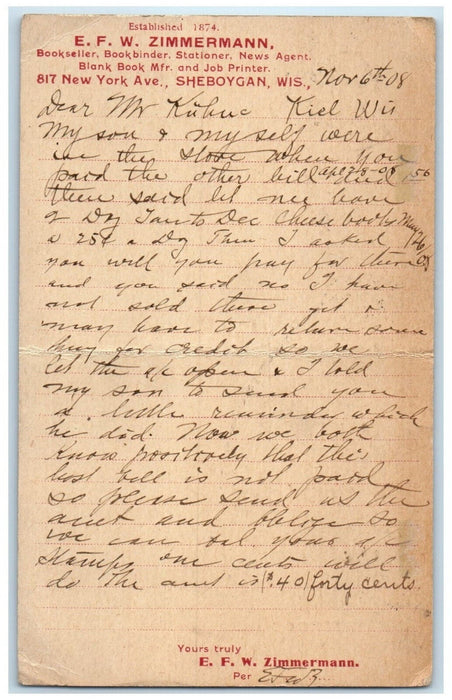 Established 1874.
E. F. W. ZIMMERMANN,
Bookseller, Bookbinder, Stationer, News Agent,
Blank Book Mfr. and Job Printer.
817 New York Ave., SHEBOYGAN, WIS., Nov 6th 08
Dear Mr Kuhne Kiel Wis
My son & myself were
in the store when you
paid the other bill and
then said let me have
2 Doz to Dec Cheese books
a 25¢ a Doz Then I asked
you will you pay for them
and you said no I have
not sold them yet &
may have to return some
they for credit so we
let the a/c open & I told
my son to send you
a little reminder which
he did. Now we both
know positively that this
last bill is not paid
so please send us the
amt and oblige so
we can bal your a/c
Stamps one cents will
do the amt is ($.40) forty cents.
Yours truly
E. F. W. Zimmermann.
Per